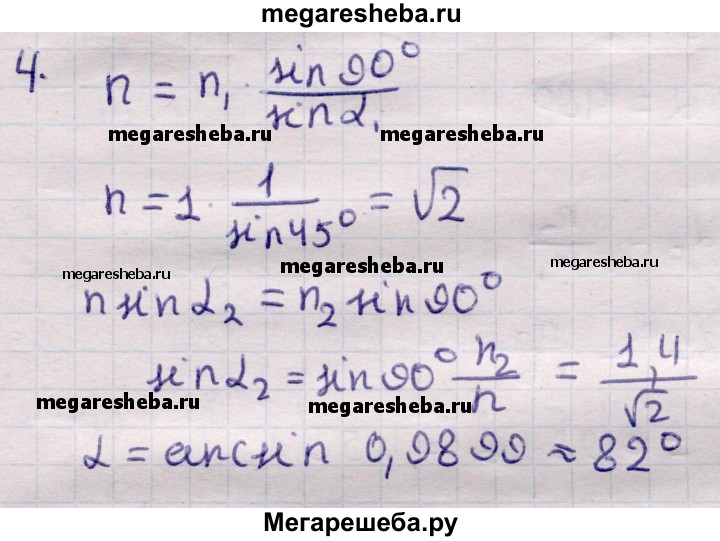 megaresheba.ru
4. n = n₁ · sin 90° / sin α₁
megaresheba.ru megaresheba.ru
n = 1 · 1 / sin 45° = √2
megaresheba.ru megaresheba.ru megaresheba.ru
n sin α₂ = n₂ sin 90°
sin α₂ = sin 90° n₂ / n = 1,4 / √2
megaresheba.ru megaresheba.ru
α = arcsin 0,9899 ≈ 82°
Мегарешеба.ру